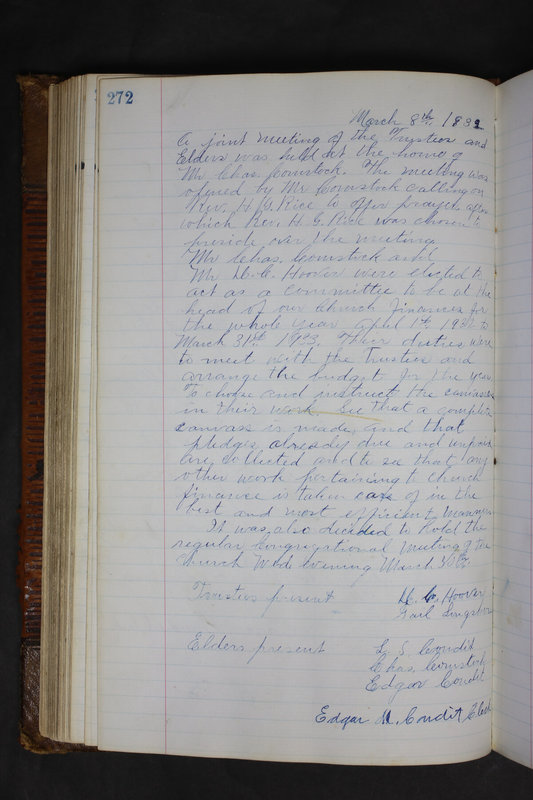 272
March 8th, 1932
A joint meeting of the Trustees and
Elders was held at the home of
Mr Chas. Comstock. The meeting was
opened by Mr Comstock calling on
Rev. H. G. Rice to offer prayer after
which Rev. H. G. Rice was chosen to
preside over the meeting.
Mr Chas. Comstock and
Mr H. C. Hoover were elected to
act as a committee to be at the
head of our Church finances for
the whole year April 1st 1932 to
March 31st 1933. Their duties were
to meet with the Trustees and
arrange the budget for the year
To choose and instruct the canvassers
in their work, See that a complete
canvass is made, and that
pledges already due and unpaid
are collected and to see that any
other work pertaining to Church
finance is taken care of in the
best and most efficient manner.
It was also decided to hold the
regular Congregational Meeting of the
Church Wed. evening March 30th
Trustees present H. C. Hoover
Gail
Elders present L. S. Condit
Chas. Comstock
Edgar Condit
Edgar M. Condit Clerk